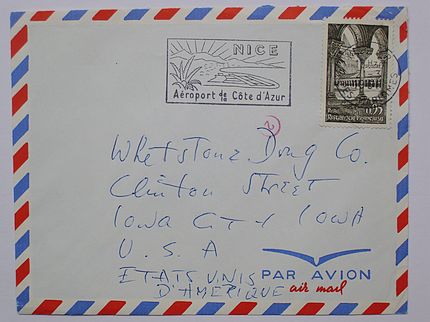 NICE
Aéroport de la Côte d'Azur
Whetstone Drug Co.
Clinton Street
IOWA CITY IOWA
U.S.A
ETATS UNIS
D'AMERIQUE
PAR AVION
air mail